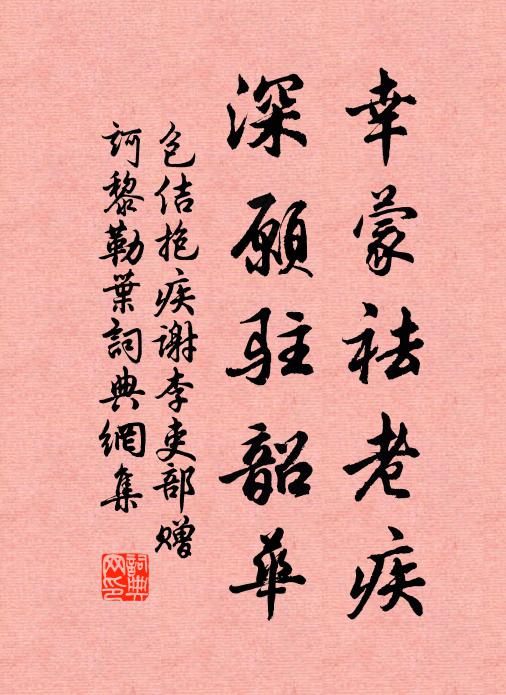 幸蒙祛老疾
深願駐韶華
包佶抱疾謝李吏部赠
訶黎勒葉詞典網集
詞典
网印